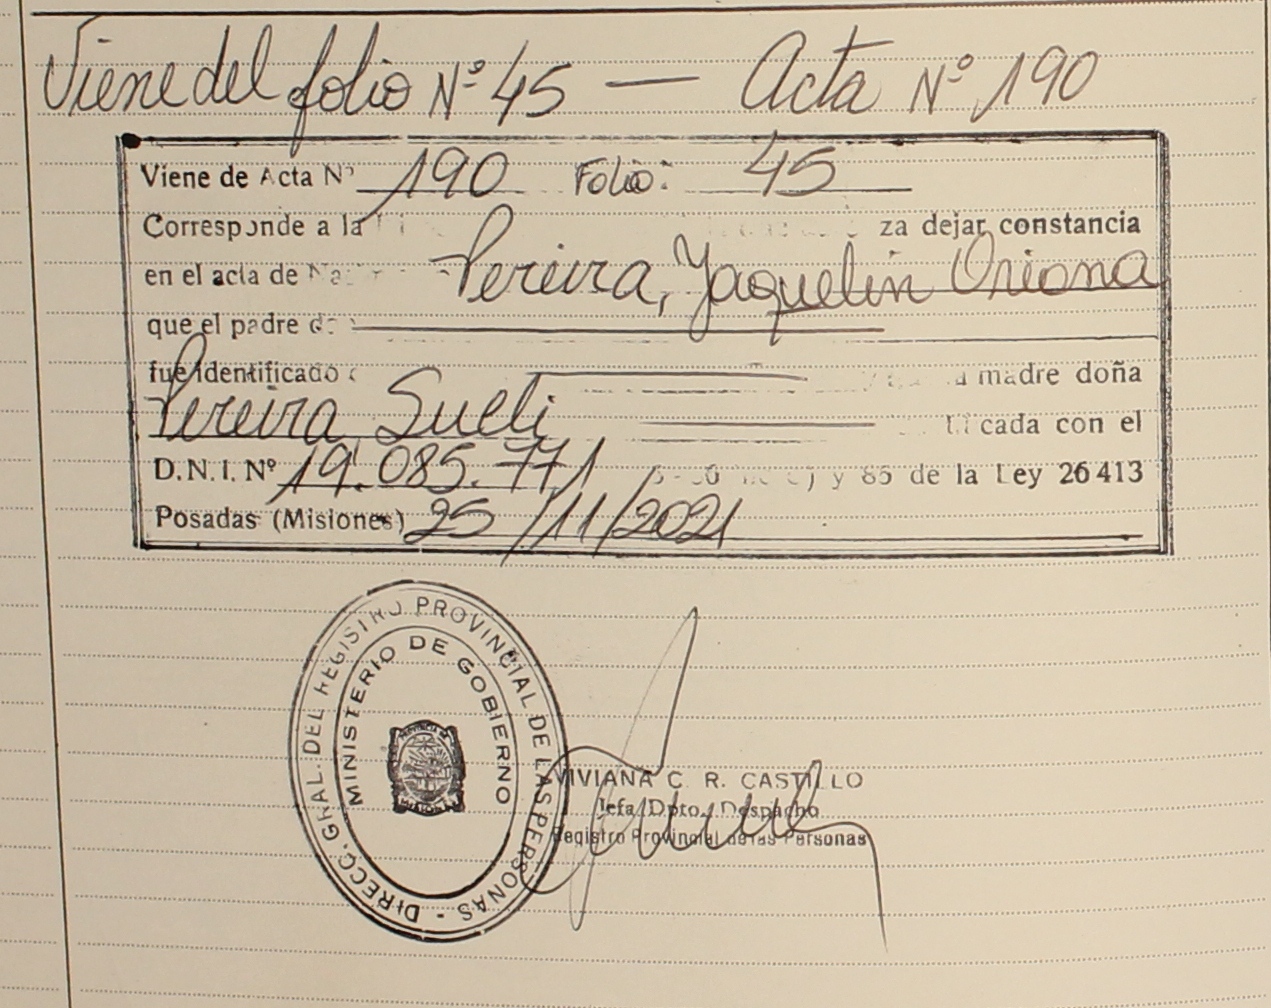 Viene del folio Nº 45 — Acta Nº 190
Viene de Acta Nº 190 Folio: 45
Corresponde a la za dejar constancia
en el acta de Pereira, Yaquelin Oriana
que el padre
fue identificado madre doña
Pereira Sueli cada con el
D.N.I. Nº 19.085.771 y 85 de la Ley 26413
Posadas (Misiones) 25/11/2021
DIRECC. GRAL. DEL REGISTRO PROVINCIAL DE LAS PERSONAS -
MINISTERIO DE GOBIERNO
VIVIANA C. R. CASTILLO
Jefa Dpto. Despacho
Registro Provincial de las Personas